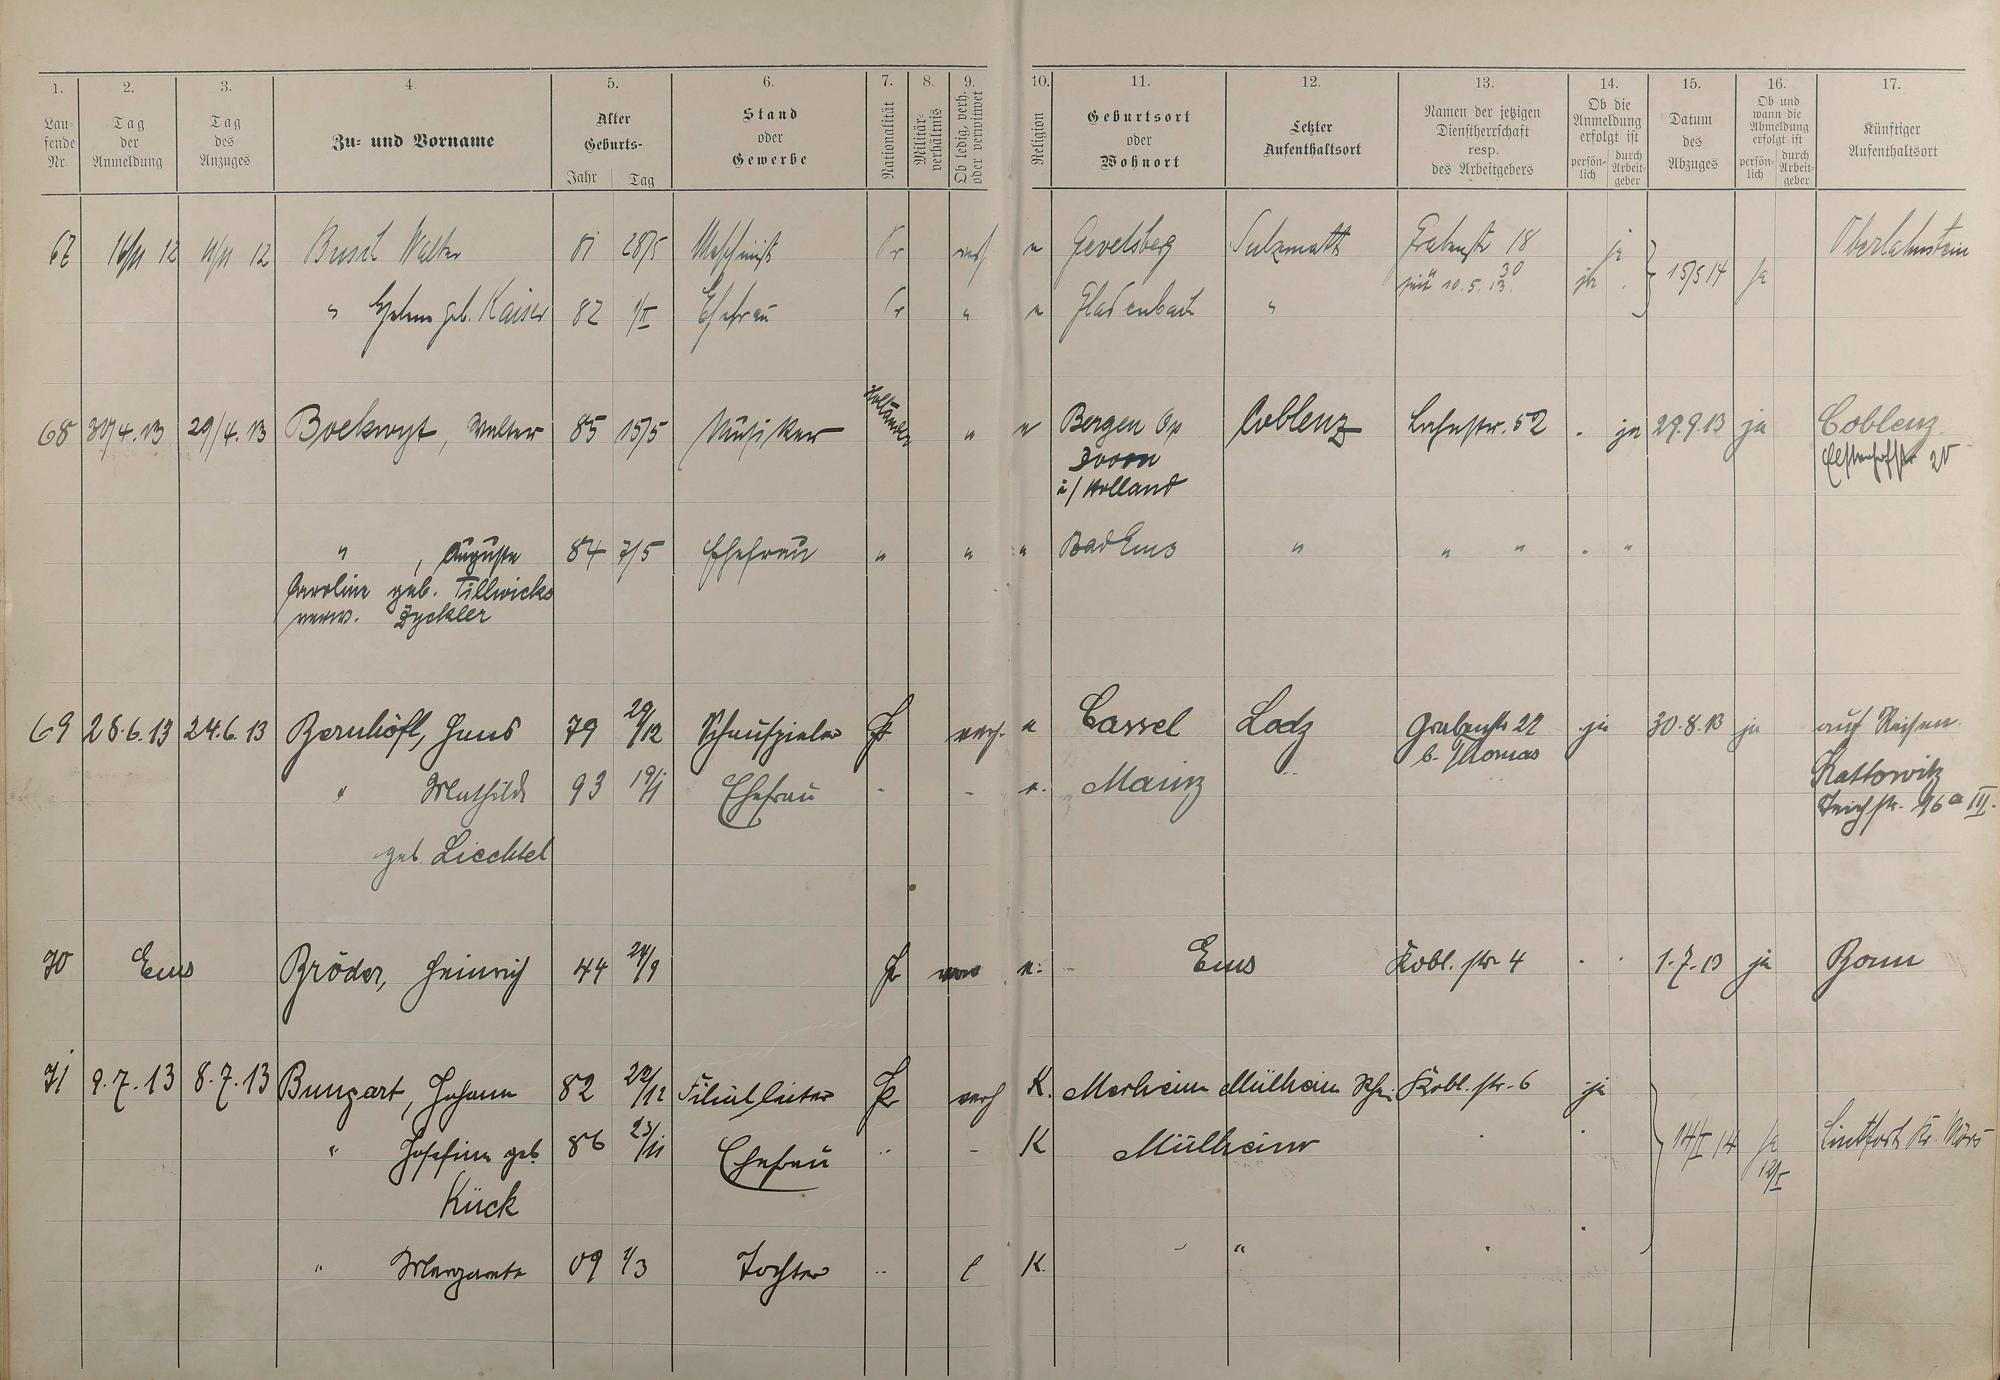 1. 2. 3. 4. 5. 6. 7. 8. 9. 10. 11. 12. 13. 14. 15. 16. 17.
Lau-
fende
Nr.
Tag
der
Anmeldung
Tag
des
Anzuges
Zu- und Vorname
Alter
Geburts-
Jahr Tag
Stand
oder
Gewerbe
Nationalität
Militär-
verhältnis
Ob ledig, verh.
oder verwitwet
Religion
Geburtsort
oder
Wohnort
Letzter
Aufenthaltsort
Namen der jetzigen
Dienstherrschaft
resp.
des Arbeitgebers
Ob die
Anmeldung
erfolgt ist
persön-
lich
durch
Arbeit-
geber
Datum
des
Abzuges
Ob und
wann die
Abmeldung
erfolgt ist
persön-
lich
durch
Arbeit-
geber
Künftiger
Aufenthaltsort
67 16/11 12 12 Busch Walter 81 28/5 Maschinist Pr verh e Gevelsberg Sulzmatt Grabenstr 18 ja Oberlahnstein
seit 10.5.13. 30 ja 15/5 14 ja
" Helene geb. Kaiser 82 1/II Ehefrau Pr " e Gladenbach "
68 30/4.13 29/4.13 Boekwyt, Walter 85 15/5 Musiker Holländer " e Bergen Op Coblenz Lahnstr. 52 . ja 29.9.13 ja Coblenz
Zoom 20
i/ Holland
" , Auguste 84 7/5 Ehefrau " " " Bad Ems " " " . "
Caroline geb. Tillwicks
verw. Zyckler
69 25.6.13 24.6.13 Bernhöft, Hans 79 29/12 Schauspieler Pr verh. e Cassel Lodz Grabenstr 22 ja 30.8.13 ja auf Reisen
b. Thomas
" Mathilde 93 19/1 Ehefrau - - e. Mainz Kattowitz
Teichstr. 16a III.
geb. Liechtel
70 Ems Bröder, Heinrich 44 24/9 Pr e. Ems Kobl. str 4 . . 1.7.13 ja Bonn
71 9.7.13 8.7.13 Bungart, Johann 82 22/12 Filialleiter Pr verh K. Merheim Mülheim Rh. Kobl. str. 6 ja
" Josefine geb. 86 23/11 Ehefrau " - K Mülheim 14/I 14 ja Lintfort Kr. Mörs
12/I
Kück
" Margarete 09 1/3 Tochter " l K. "